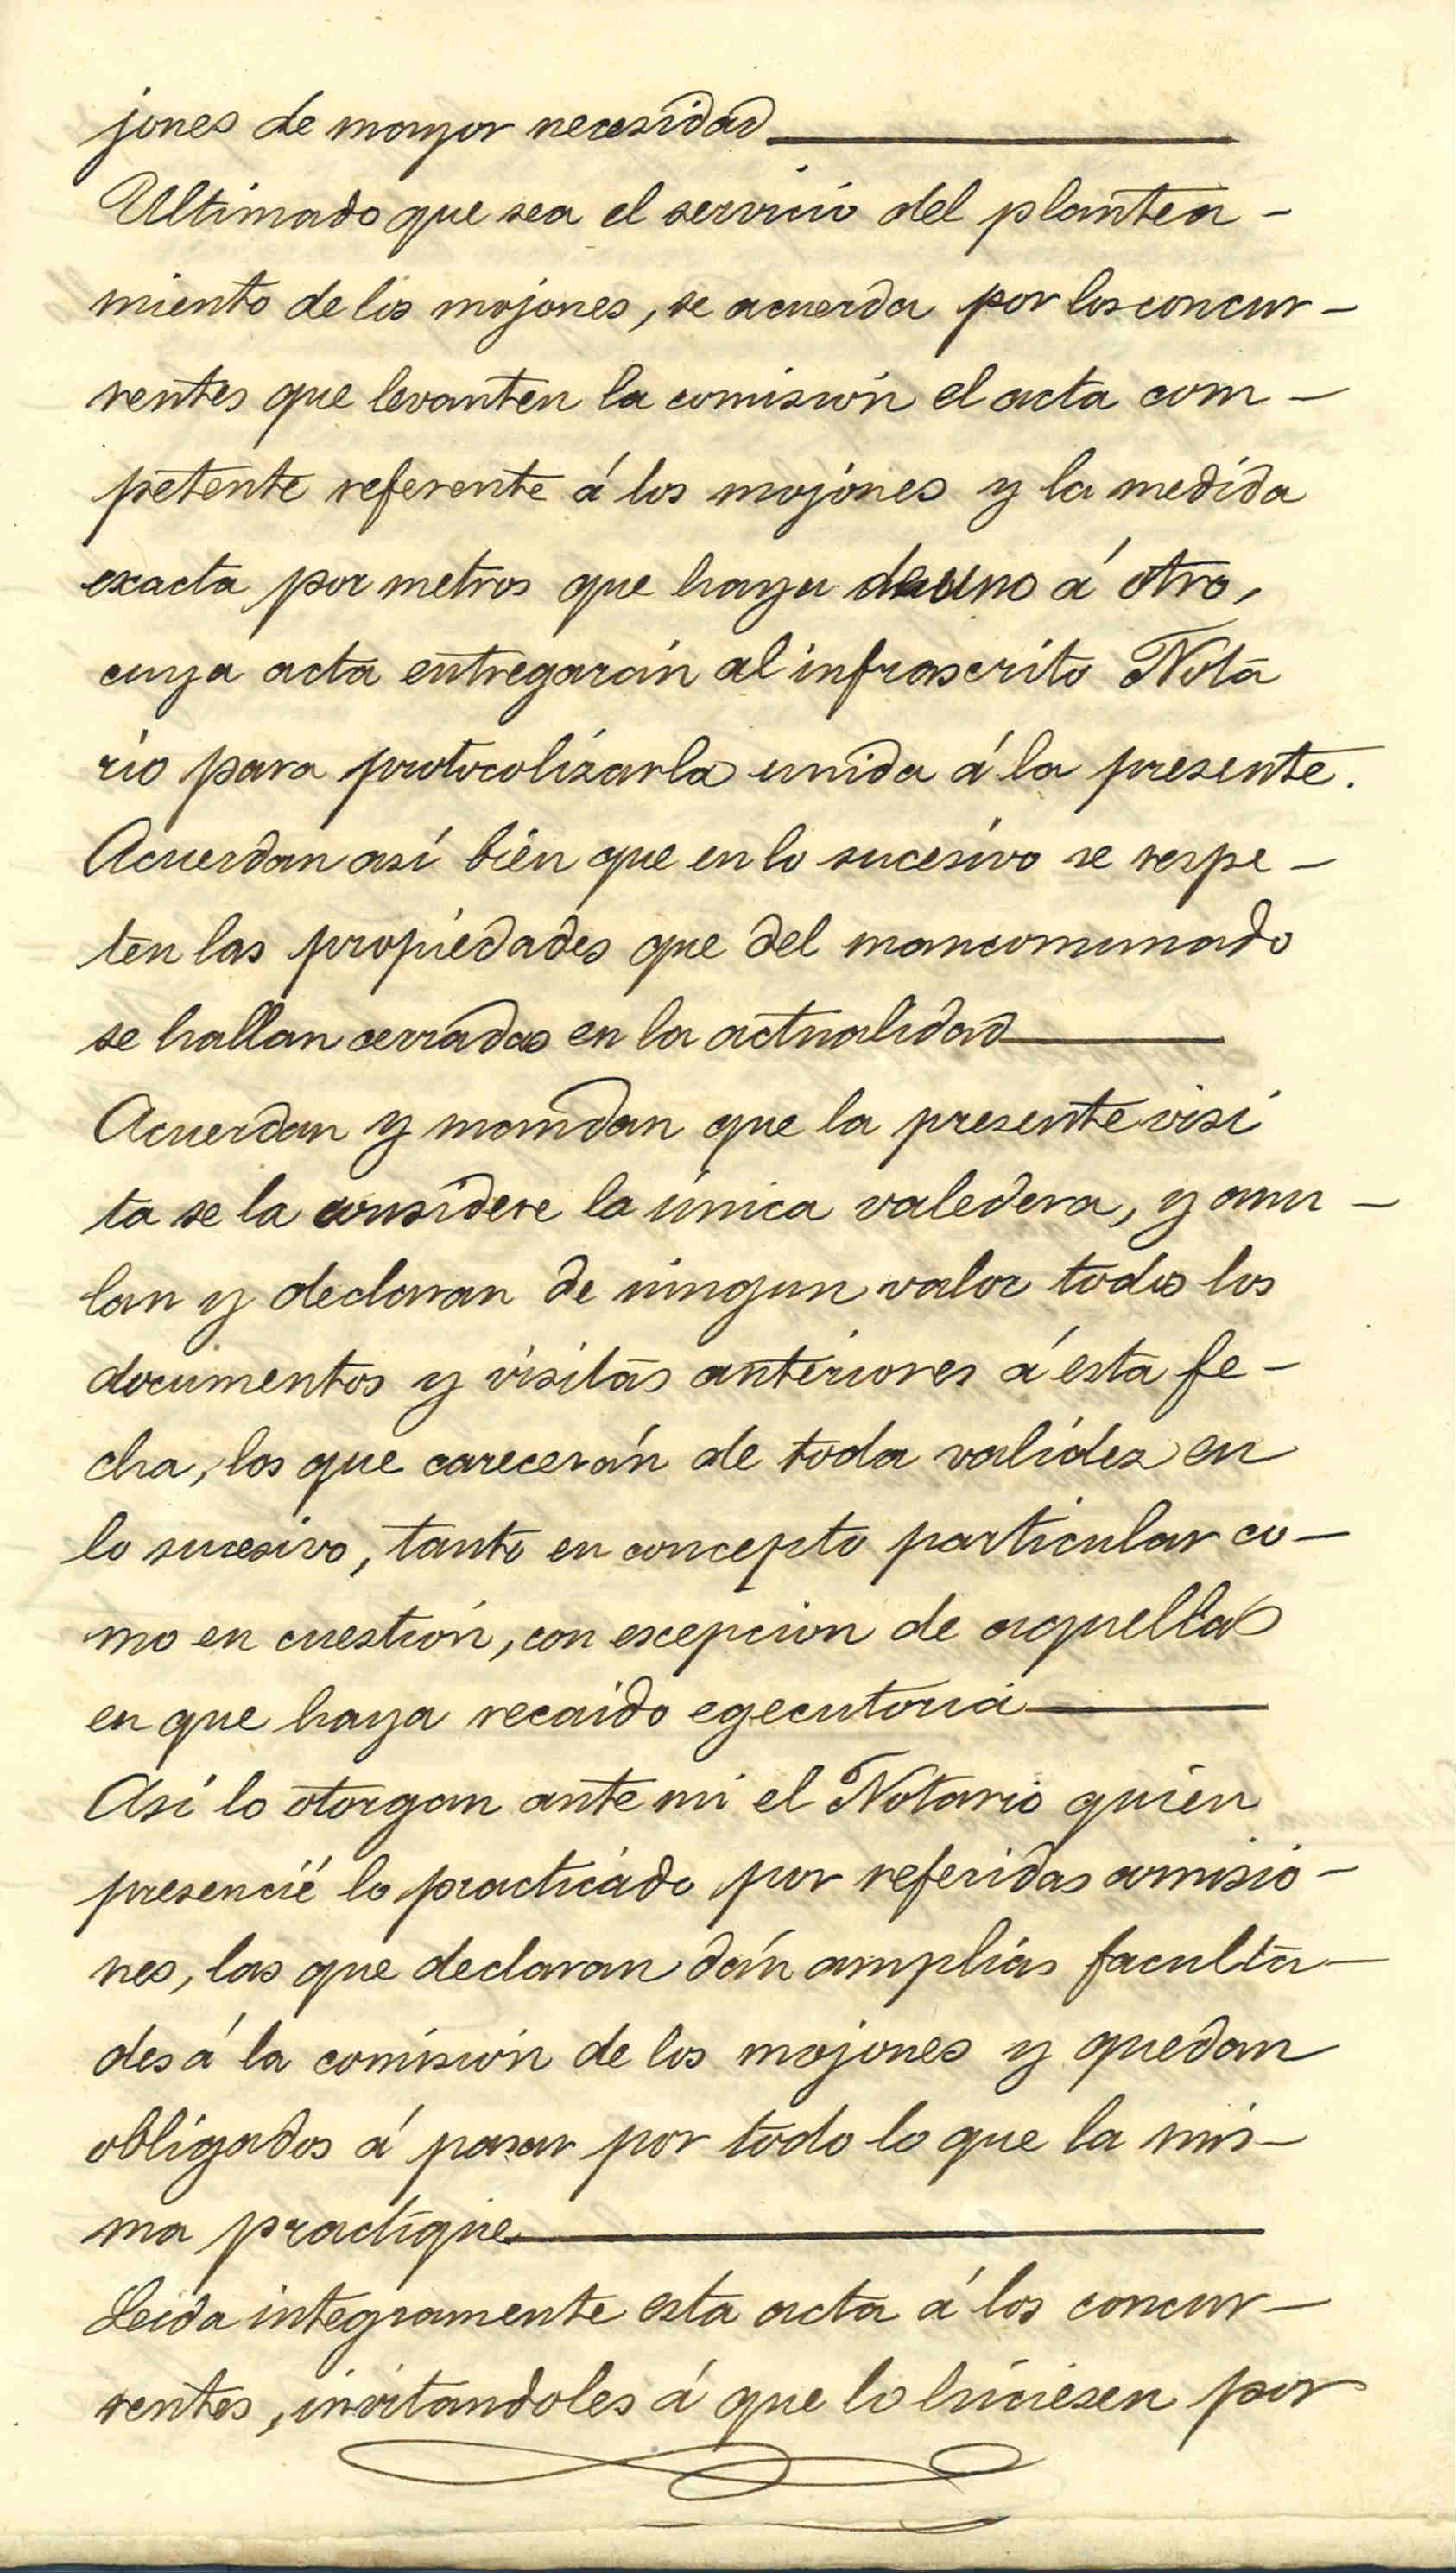 jones de mayor necesidad
Ultimado que sea el servicio del plantea-
miento de los mojones, se acuerda por los concur-
rentes que levanten la comisión el acta com-
petente referente á los mojones y la medida
exacta por metros que haya de uno á otro,
cuya acta entregarán al infrascrito Nota
rio para protocolizarla unida á la presente.
Acuerdan así bién que en lo sucesivo se respe-
ten las propiedades que del mancomunado
se hallan cerradas en la actualidad
Acuerdan y mandan que la presente visi
ta se la considere la única valedera, y anu-
lan y declaran de ningun valor todos los
documentos y visitas anteriores á esta fe-
cha, los que carecerán de toda validez en
lo sucesivo, tanto en concepto particular co-
mo en cuestión, con escepcion de aquellas
en que haya recaido egecutoria
Así lo otorgan ante mi el Notario quien
presencié lo practicado por referidas comisio-
nes, las que declaran dán amplias faculta-
des á la comisión de los mojones y quedan
obligados á pasar por todo lo que la mis-
ma practique
Leida integramente esta acta á los concur-
rentes, invitandoles á que lo hiciesen por